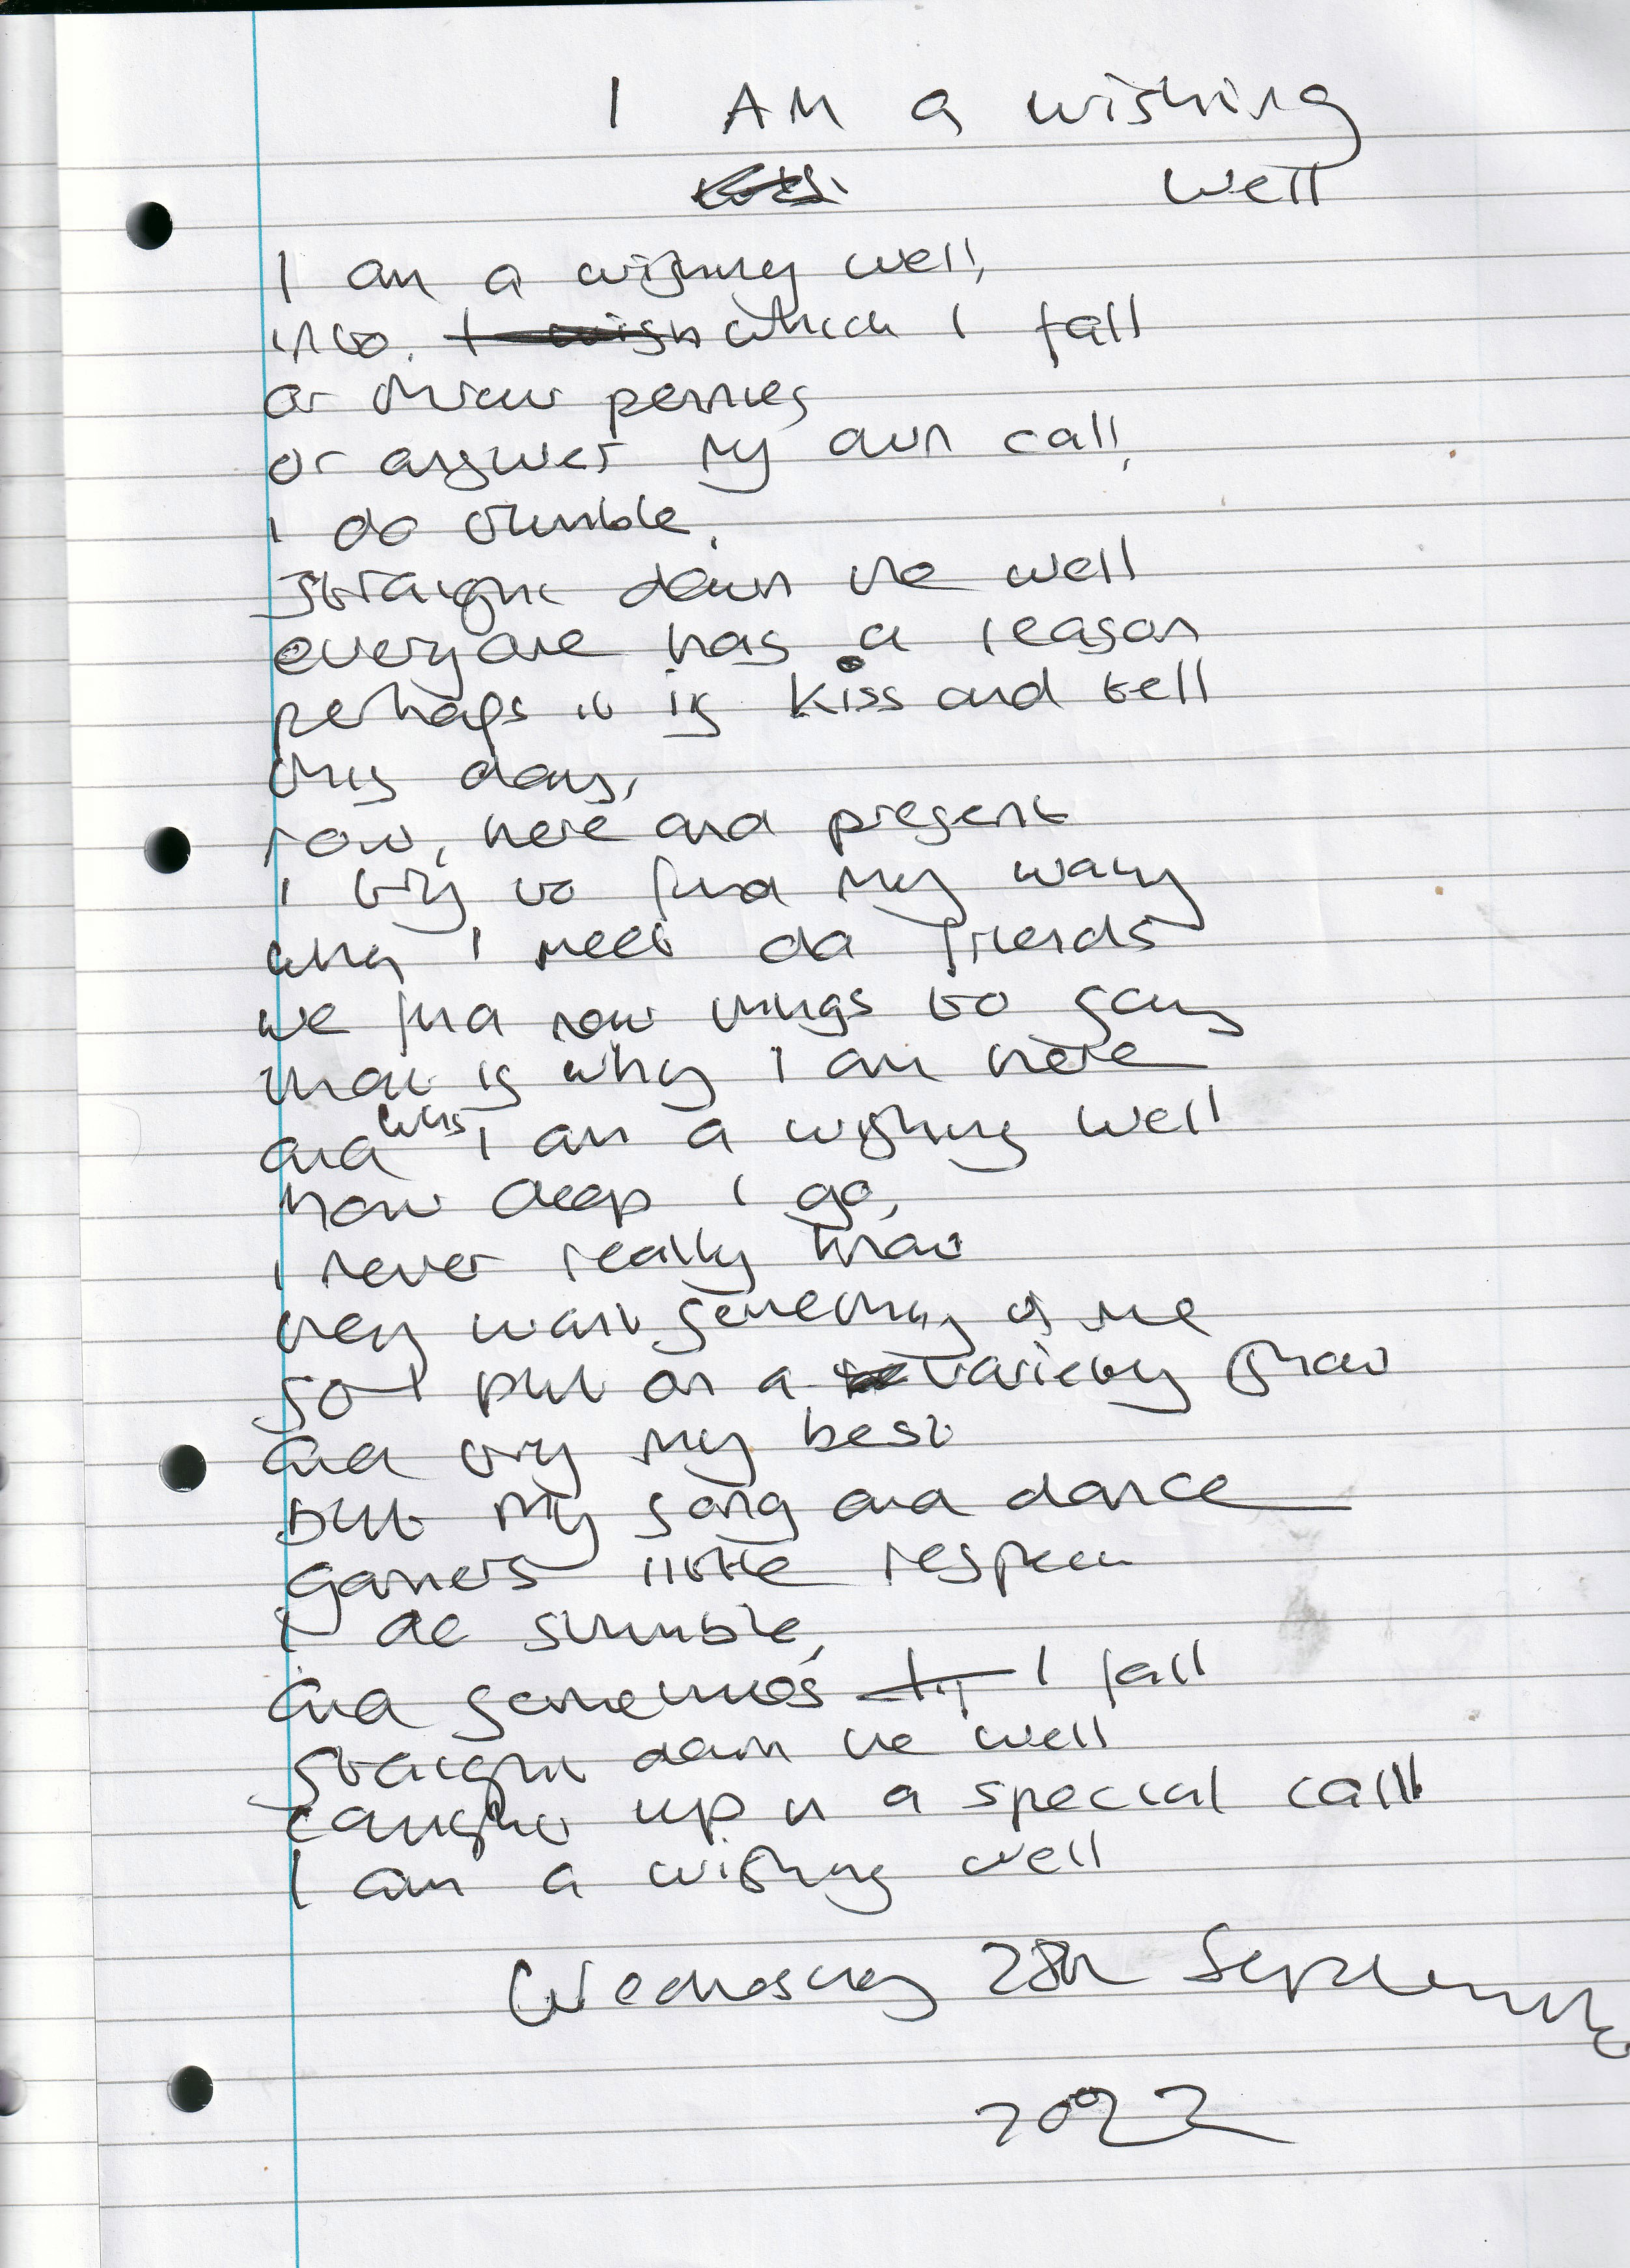 I AM a wishing
well
I am a wishing well,
into which I fall
or throw pennies
or answer my own call,
I do stumble,
straight down the well
everyone has a reason
perhaps it is kiss and tell
this day,
now, here and present
I try to find my way
when I meet old friends
we find new things to say
that is why I am here
and why I am a wishing well
how deep I go,
I never really know
they want something of me
so I put on a variety show
and try my best
but my song and dance
garners little respect
I do stumble,
and sometimes I fall
straight down the well
caught up in a special call
I am a wishing well
Wednesday 28th September
2022